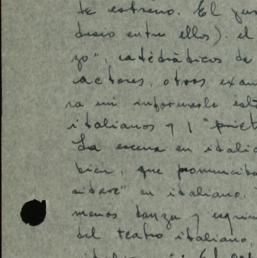 de estreno. El jur
deseo entre ellos). el
go", catedráticos de
actores, otros exam
ra mi informarle est
italianos y 1 "priet
La escena en italia
bien, que pronunciba
cidere" en italiano.
menos danza y esgrim
del teatro italiano,